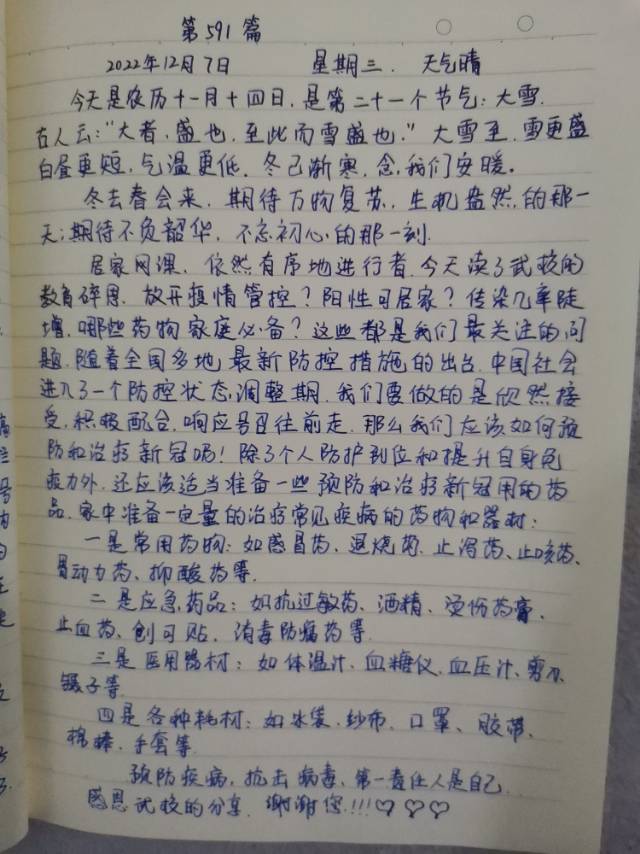 第591篇
2022年12月7日 星期三. 天气晴
今天是农历十一月十四日,是第二十一个节气:大雪.
古人云:"大者,盛也,至此而雪盛也."大雪至,雪更盛
白昼更短,气温更低.冬已渐寒,念,我们安暖。
冬去春会来,期待万物复苏,生机盎然的那一
天;期待不负韶华,不忘初心的那一刻.
居家网课,依然有序地进行者.今天读了武校的
教育碎思,放开疫情管控?阳性可居家?传染几率陡
增,哪些药物家庭必备?这些都是我们最关注的问
题.随着全国多地最新防控措施的出台.中国社会
进入了一个防控状态调整期.我们要做的是欣然接
受,积极配合,响应号召往前走.那么我们应该如何预
防和治疗新冠呢!除了个人防护到位和提升自身免
疫力外.还应该适当准备一些预防和治疗新冠用的药
品.家中准备一定量的治疗常见疾病的药物和器材:
一是常用药物:如感冒药、退烧药、止泻药、止咳药、
胃动力药、抑酸药等.
二是应急药品:如抗过敏药、酒精、烫伤药膏、
止血药、创可贴、消毒防腐药等.
三是医用器材:如体温计、血糖仪、血压计、剪刀、
镊子等.
四是各种耗材:如冰袋、纱布、口罩、胶带、
棉棒、手套等.
预防疾病,抗击病毒,第一责任人是自己.
感恩武校的分享.谢谢您!!!♡♡♡